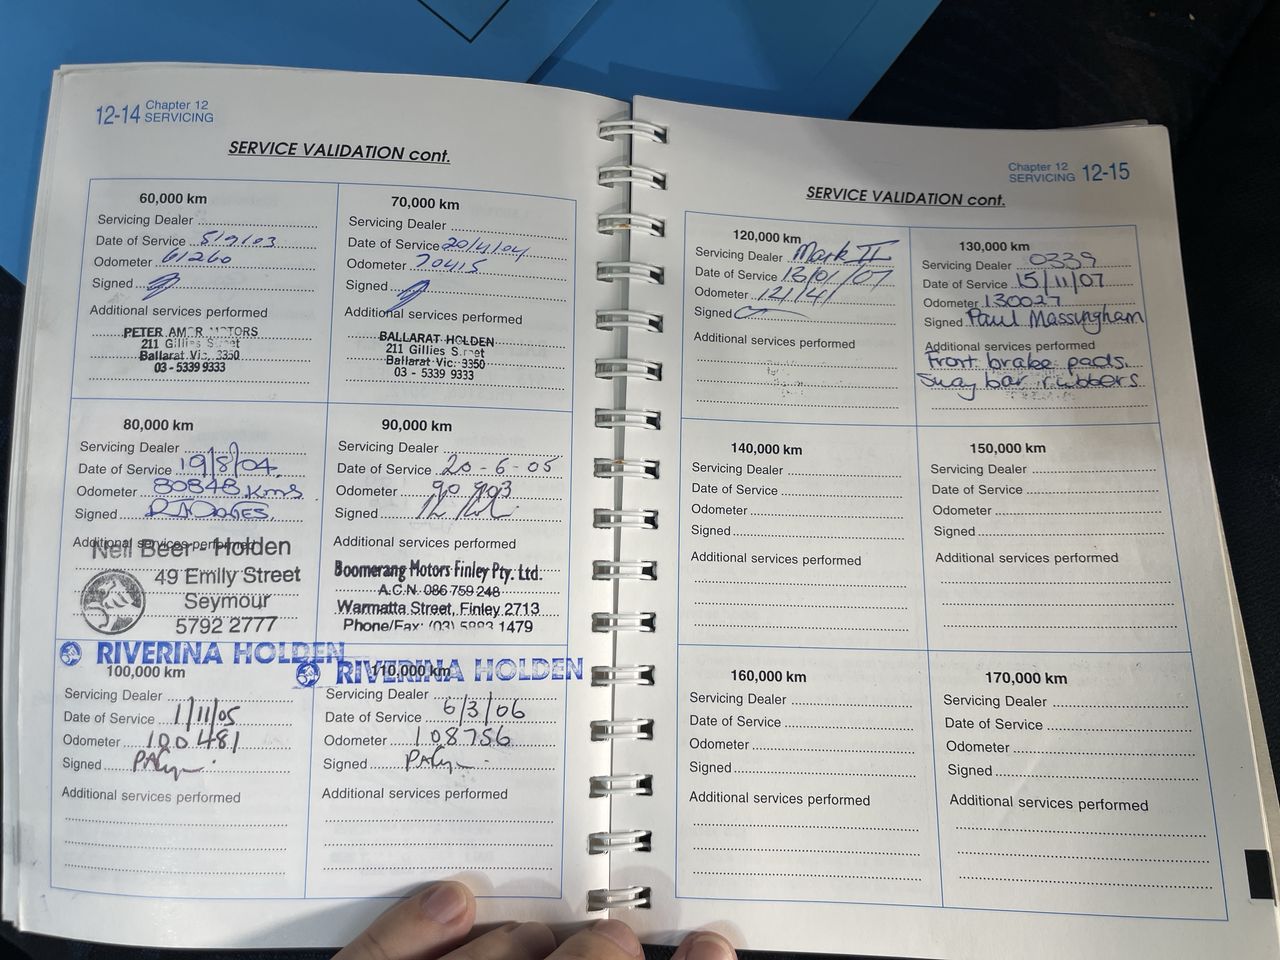 12-14 Chapter 12
SERVICING
SERVICE VALIDATION cont.
60,000 km
Servicing Dealer
Date of Service 5/9/03
Odometer 61260
Signed
Additional services performed
PETER MOTORS
211 Gillies
Ballarat Vic. 3350
03 - 5339 9333
70,000 km
Servicing Dealer
Date of Service 20/4/04
Odometer 70415
Signed
Additional services performed
BALLARAT HOLDEN
211 Gillies
Ballarat Vic. 3350
03 - 5339 9333
80,000 km
Servicing Dealer
Date of Service 19/8/04
Odometer 80848 Kms
Signed
Additional services performed
Neil Beer - Holden
49 Emily Street
Seymour
5792 2777
90,000 km
Servicing Dealer
Date of Service 20-6-05
Odometer 90 903
Signed
Additional services performed
Boomerang Motors Finley Pty. Ltd.
A.C.N. 086 759 248
Warmatta Street, Finley 2713
Phone/Fax: (03) 5883 1479
RIVERINA HOLDEN
100,000 km
Servicing Dealer
Date of Service 1/11/05
Odometer 100481
Signed
Additional services performed
RIVERINA HOLDEN
110,000 km
Servicing Dealer
Date of Service 6/3/06
Odometer 108756
Signed
Additional services performed
Chapter 12
SERVICING 12-15
SERVICE VALIDATION cont.
120,000 km
Servicing Dealer Mark II
Date of Service 13/01/07
Odometer 121141
Signed
Additional services performed
130,000 km
Servicing Dealer 0339
Date of Service 15/11/07
Odometer 130027
Signed Paul Massingham
Additional services performed
Front brake pads.
Sway bar rubbers
140,000 km
Servicing Dealer
Date of Service
Odometer
Signed
Additional services performed
150,000 km
Servicing Dealer
Date of Service
Odometer
Signed
Additional services performed
160,000 km
Servicing Dealer
Date of Service
Odometer
Signed
Additional services performed
170,000 km
Servicing Dealer
Date of Service
Odometer
Signed
Additional services performed